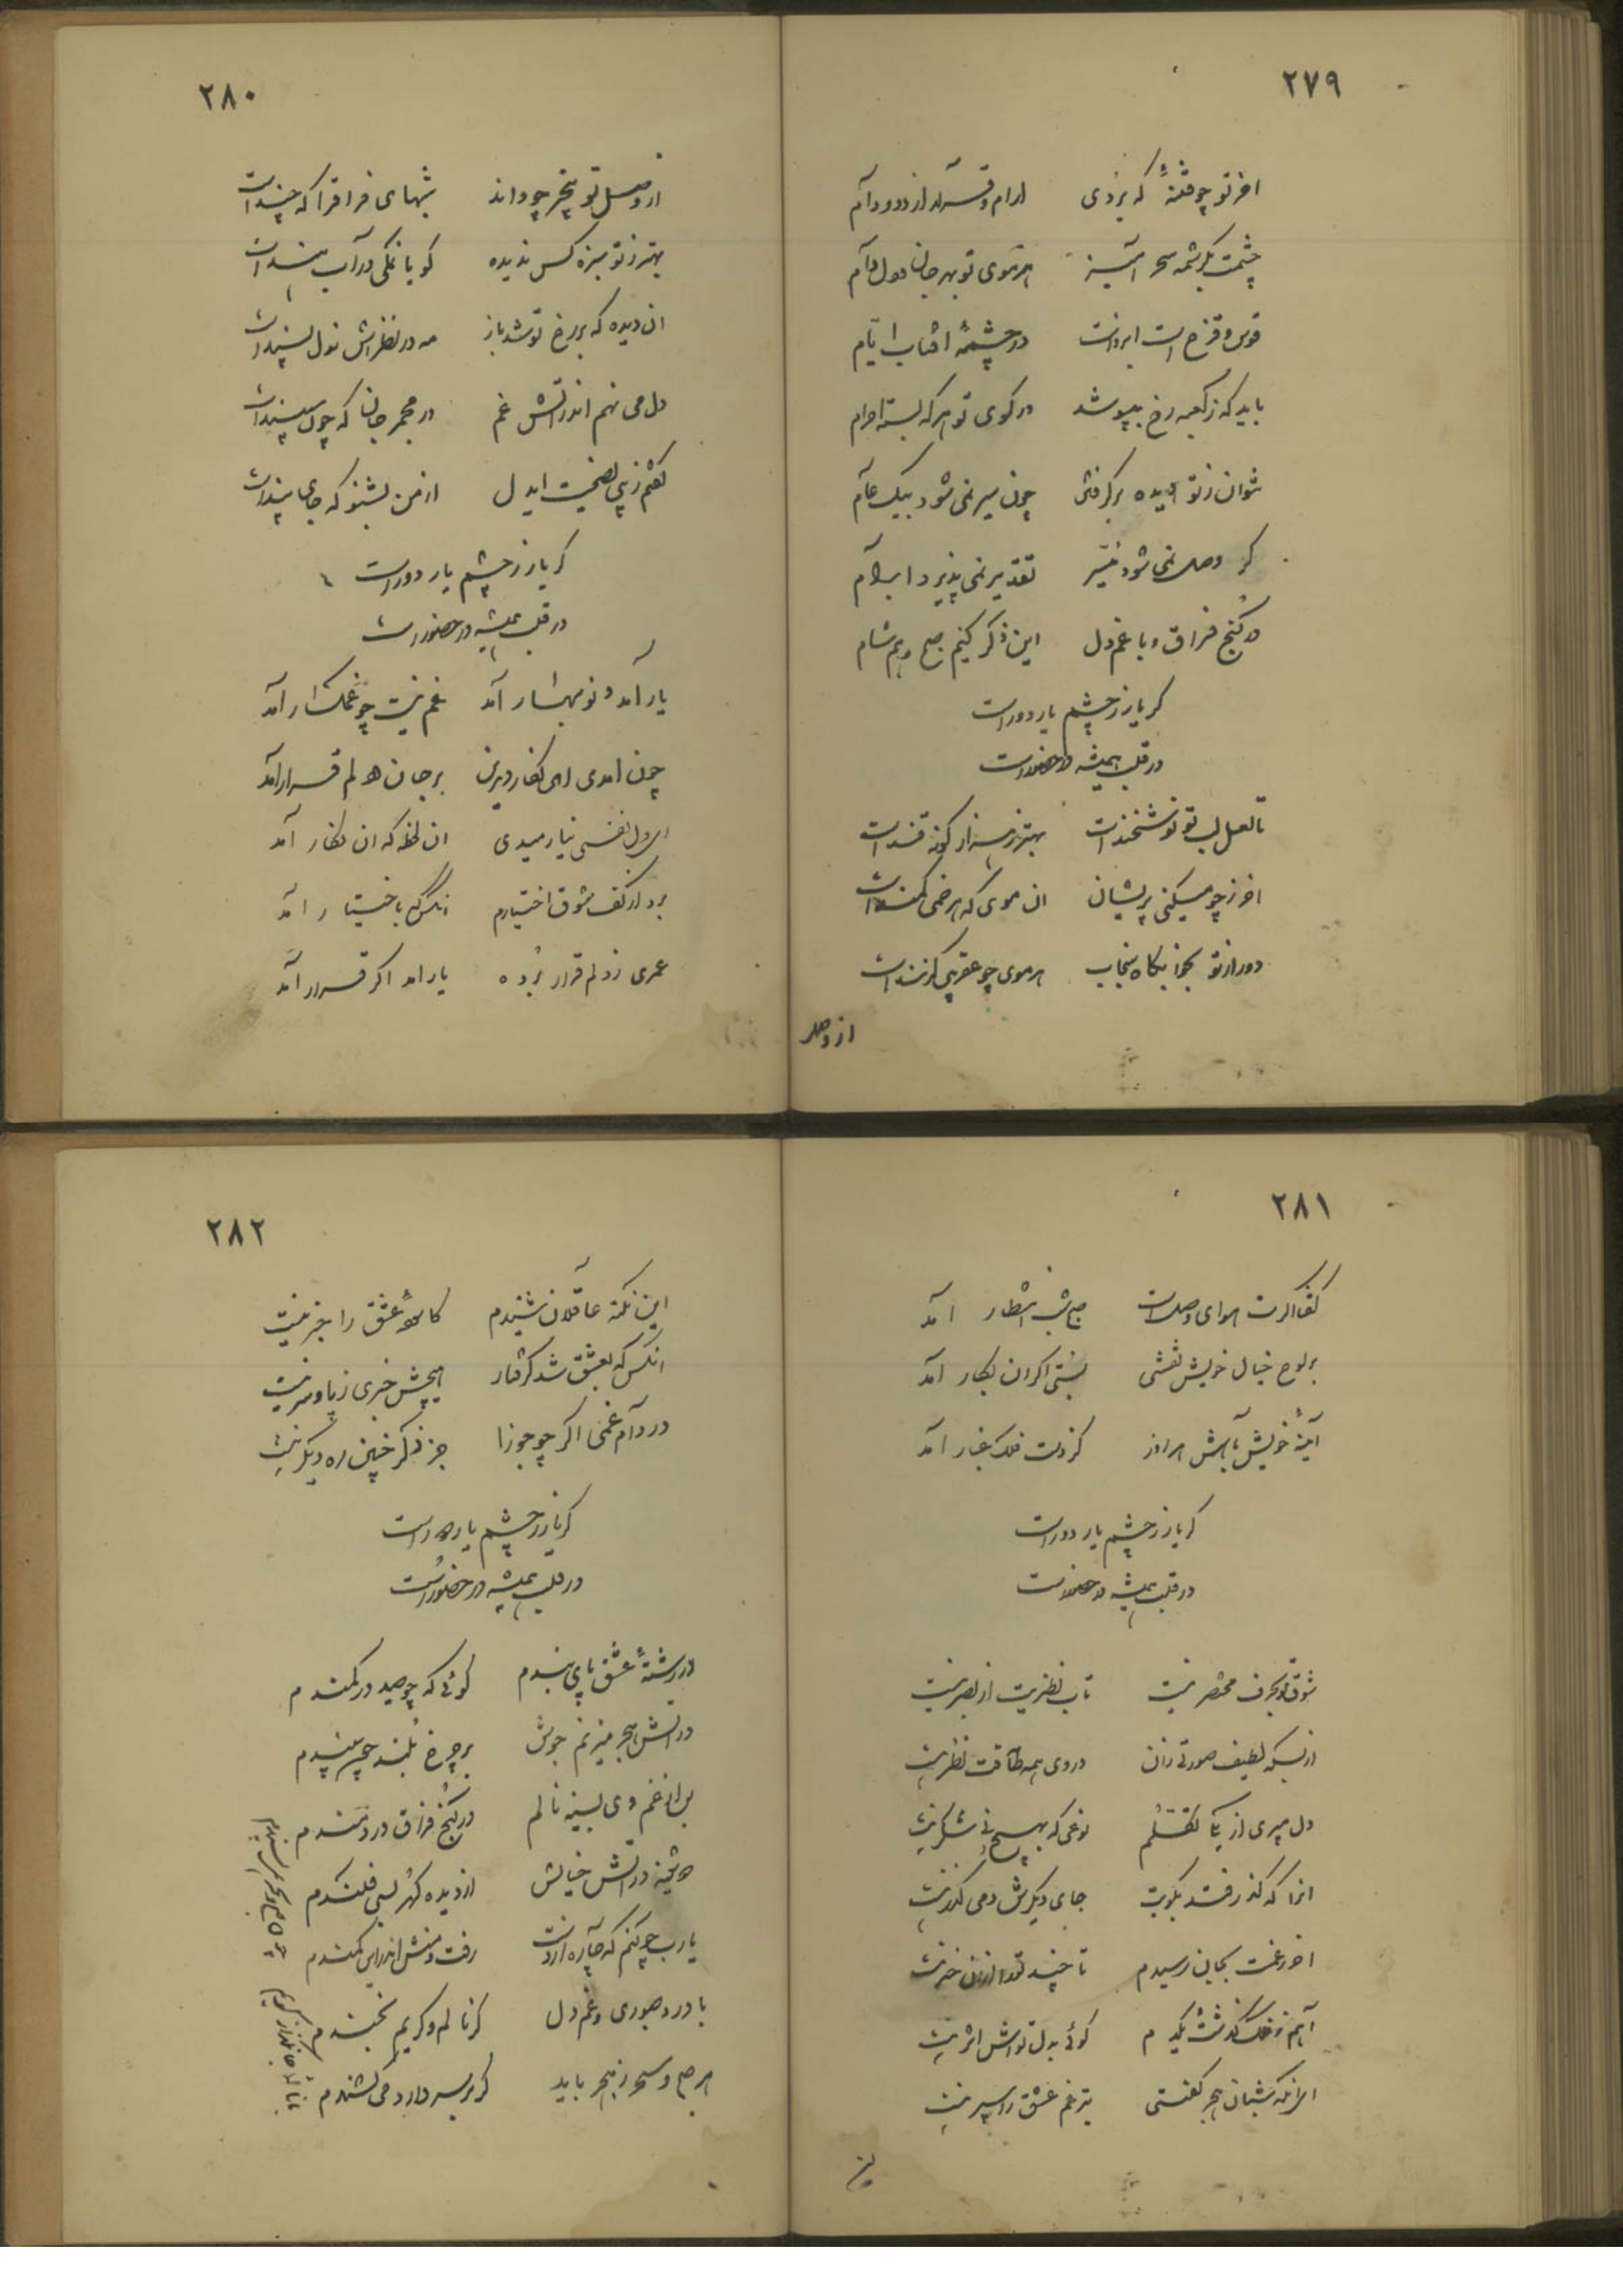 ٢٧٩
اخر تو چو فتنهٔ که بردی ارام و قرار از دد و دام
چشمت بکرشمه سحر آمیز هر موی تو بهر جان و دل دام
قوس و قزح است ابروانت در چشمهٔ افتاب ایام
باید که ز کعبه رخ بپوشد در کوی تو هر که بسته احرام
نتوان ز تو دیده بر کرفتن چون سیر نمی شود بیک عام
کر وصل نمی شود میسر تقدیر نمی پذیرد ابرام
در کنج فراق و با غم دل این ذکر کنیم صبح و هم شام
کر یار ز چشم یار دور است
در قلب همیشه در حضور است
تا لعل لب تو نوشخند است بهتر ز هزار کونه قند است
اخر ز چه میکنی پریشان ان موی که هر خمی کمند است
دور از تو بخوابکاه سنجاب هر موی چو عقرب کزند است
از وصل
٢٨٠
از وصل تو بیخبر چه داند شبهای فراق را که چند است
بهتر ز تو سبزه کس ندیده کویا نمکی در آب هند است
ان دیده که بر رخ تو شد باز مه در نظرش نه دل پسند است
دل می نهم اندر اتش غم در مجمر جان که چون سپند است
کفتم ز پی نصیحت ایدل از من بشنو که جای پند است
کر یار ز چشم یار دور است
در قلب همیشه در حضور است
یار آمد و نو بهار آمد غم نیست چو غمکسار آمد
چون امدی ای نکار دیرین بر جان و دلم قرار آمد
ای دل نفسی نیارمیدی ان لحظه که ان نکار آمد
برد از کف شوق اختیارم انکس که باختیار آمد
عمری ز دلم قرار برده یار امد اکر قرار آمد
٢٨١
کفتا کرت هوای وصل است صبح شب انتظار آمد
بر لوح خیال خویش نقشی بستی اکر ان نکار آمد
آینهٔ خویش بآهش کز دست فلک غبار آمد
کر یار ز چشم یار دور است
در قلب همیشه در حضور است
شوق تو بحرف مختصر نیست تاب نظریت از بصر نیست
از بسکه لطیف صورتی زان در وی همه طاقت نظر نیست
دل میبری از یک تکلم نوعی که بهیچ نی شکر نیست
انرا که کذر فتد بکویت جای دیکرش دمی کذر نیست
اخر ز غمت بجان رسیدم تا چند تو را از من خبر نیست
آهم ز فلک کذشت یکدم کوئی بدل تواش اثر نیست
ای انکه شبان هجر کفتی تیر غم عشق را سپر نیست
این
٢٨٢
این نکته عاقلان شنیدم کاسوهٔ عشق را خبر نیست
انکس که بعشق شد کرفتار هیچش خبری ز پا و سر نیست
در دام غمی اکر چو جوزا جز ذکر چنین ره دیکر نیست
کر یار ز چشم یار دور است
در قلب همیشه در حضور است
در رشتهٔ عشق پای بندم کوئی که چو صید در کمندم
در اتش هجر میزنم جوش بر چرخ بلند چون سپندم
من از غم وی بسینه نالم در کنج فراق دردمندم
در اتش خیالش از دیده کهر بسی فکندم
یا رب چکنم که چاره از دست رفت و منش اندر این کمندم
با درد صبوری و غم دل کر نالم و کریم بخندم
هر صبح و سحر ز هجر باید کر بر سر دار می کشندم